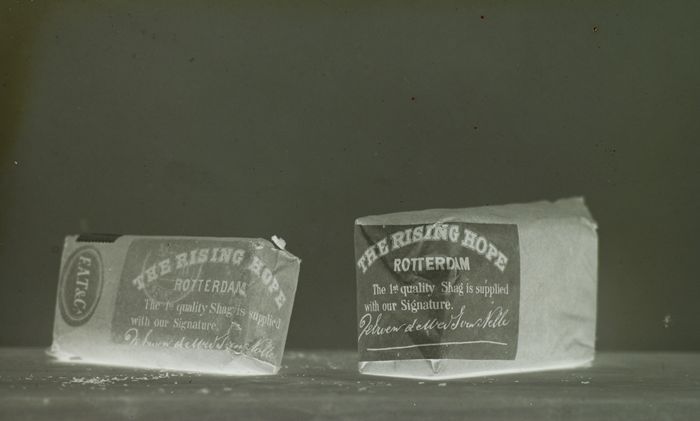 EATSC
THE RISING HOPE
ROTTERDAM
The 1st quality Shag is supplied
with our Signature.
THE RISING HOPE
ROTTERDAM
The 1st quality Shag is supplied
with our Signature.